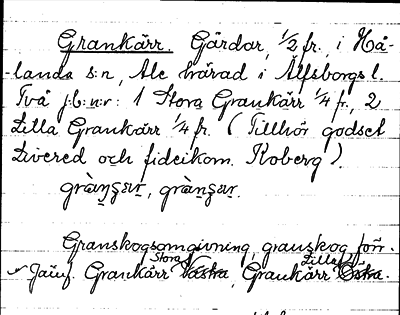 Grankärr. Gårdar, 1/2 fr., i Hå-
-landa s:n, Ale härad i Älfsborgs l.
Två j:b:n:r: 1 Stora Grankärr 1/4 fr., 2
Lilla Grankärr 1/4 fr. (Tillhör godset
Livered och fideikom. Koberg).
Granskogsomgivning, granskog förr.
Jämf. Grankärr Stora Västra, Grankärr Lilla Östra.